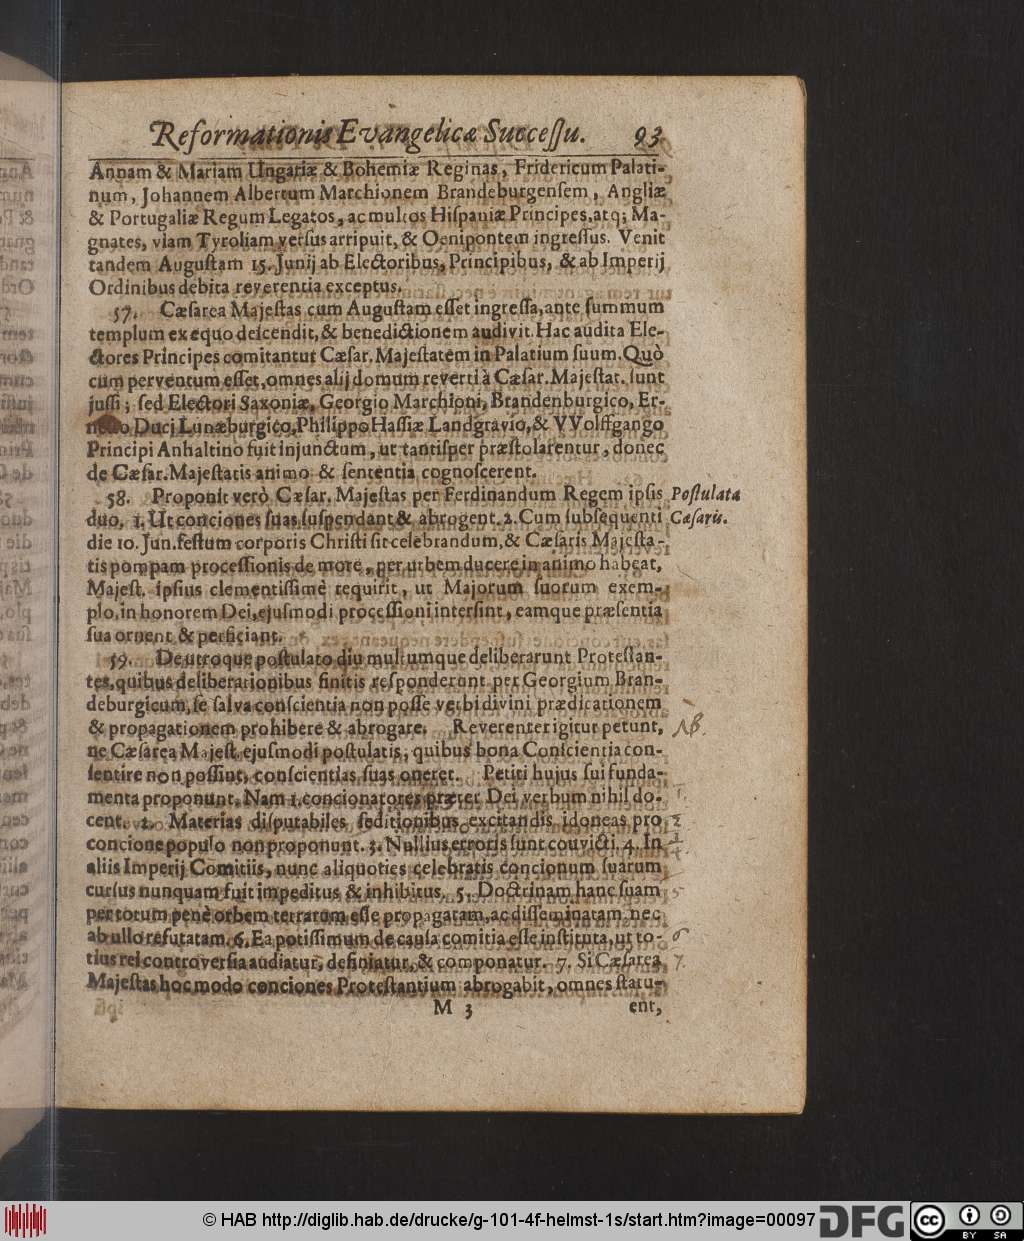 Reformationis Evangelicæ Successu. 93
Annam & Mariam Ungariæ & Bohemiæ Reginas, Fridericum Palati-
num, Johannem Albertum Marchionem Brandeburgensem, Angliæ
& Portugaliæ Regum Legatos, ac multos Hiſpaniæ Principes, atq; Ma-
gnates, viam Tyroliam verſus arripuit, & Oenipontem ingreſſus. Venit
tandem Auguſtam 15. Junij ab Electoribus, Principibus, & ab Imperij
Ordinibus debita reverentia exceptus.
57. Cæſarea Majeſtas cum Auguſtam eſſet ingreſſa, ante ſummum
templum ex equo deſcendit, & benedictionem audivit. Hac audita Ele-
ctores Principes comitantur Cæſar. Majeſtatem in Palatium ſuum. Quò
cùm perventum eſſet, omnes alij domum reverti à Cæſar. Majeſtat. ſunt
juſſi; ſed Electori Saxoniæ, Georgio Marchioni, Brandenburgico, Er-
neſto Duci Lunæburgico, Philippo Haſſiæ Landgravio, & VVolffgango
Principi Anhaltino fuit injunctum, ut tantiſper præſtolarentur, donec
de Cæſar. Majeſtatis animo & ſententia cognoſcerent.
58. Proponit verò Cæſar. Majeſtas per Ferdinandum Regem ipſis
Poſtulata
duo, 1. Ut conciones ſuas ſuſpendant & abrogent. 2. Cum ſubſequenti
Cæſaris.
die 10. Jun. feſtum corporis Chriſti ſit celebrandum, & Cæſaris Majeſta-
tis pompam proceſſionis de more, per urbem ducere in animo habeat,
Majeſt. ipſius clementiſſimè requirit, ut Majorum ſuorum exem-
plo, in honorem Dei, ejuſmodi proceſſioni interſint, eamque præſentia
ſua ornent & perficiant.
59. De utroque poſtulato diu multumque deliberarunt Proteſtan-
tes, quibus deliberationibus finitis reſponderunt per Georgium Bran-
deburgicum, ſe ſalva conſcientia non poſſe verbi divini prædicationem
& propagationem prohibere & abrogare. Reverenter igitur petunt,
NB.
ne Cæſarea Majeſt. ejuſmodi poſtulatis, quibus bona Conſcientia con-
ſentire non poſſint, conſcientias ſuas oneret. Petiti hujus ſui funda-
menta proponunt, Nam 1. concionatores præter Dei verbum nihil do-
cent. 2. Materias diſputabiles ſeditionibus excitandis idoneas pro
2
concione populo non proponunt. 3. Nullius erroris ſunt convicti. 4. In
aliis Imperij Comitiis, nunc aliquoties celebratis concionum ſuarum
curſus nunquam fuit impeditus & inhibitus. 5. Doctrinam hanc ſuam
5
per totum penè orbem terrarum eſſe propagatam, ac diſſeminatam, nec
ab ullo refutatam. 6. Ea potiſſimum de cauſa comitia eſſe inſtituta, ut to-
6
tius rei controverſia audiatur, definiatur, & componatur. 7. Si Cæſarea
7.
Majeſtas hoc modo conciones Proteſtantium abrogabit, omnes ſtatu-
M 3 ent,
© HAB http://diglib.hab.de/drucke/g-101-4f-helmst-1s/start.htm?image=00097
DFG
cc BY SA